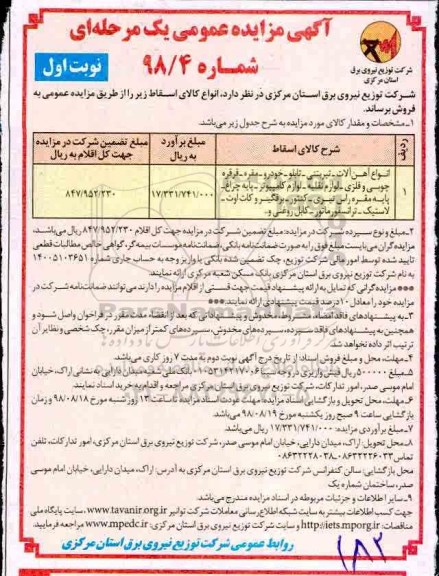 آگهی مزایده عمومی یک مرحله‌ای
شماره ۹۸/۴
نوبت اول
شرکت توزیع نیروی برق
استان مرکزی
شرکت توزیع نیروی برق استان مرکزی در نظر دارد، انواع کالای اسقاط زیر را از طریق مزایده عمومی به
فروش برساند.
۱ـ مشخصات و مقدار کالای مورد مزایده به شرح جدول زیر می‌باشد.
ردیف
شرح کالای اسقاط
مبلغ برآورد
به ریال
مبلغ تضمین شرکت در مزایده
جهت کل اقلام به ریال
۱
انواع آهن‌آلات - تیر بتنی - تابلو - خودرو - مقره - قرقره
چوبی و فلزی - لوازم نقلیه - لوازم کامپیوتر - پایه چراغ -
پایه مقره راس تیری - کنتور - برقگیر و کات اوت -
لاستیک - ترانسفورماتور - کابل روغنی و...
۱۷/۳۳۱/۷۴۱/۰۰۰
۸۴۷/۹۵۲/۲۳۰
۲ـ مبلغ و نوع سپرده شرکت در مزایده: مبلغ تضمین شرکت در مزایده جهت کل اقلام ۸۴۷/۹۵۲/۲۳۰ ریال می‌باشد،
مزایده‌گران می‌بایست مبلغ فوق را به صورت ضمانت‌نامه بانکی، ضمانت‌نامه موسسات بیمه‌گر، گواهی خالص مطالبات قطعی
تایید شده توسط امور مالی شرکت توزیع، چک تضمین شده بانکی یا واریز وجه به حساب جاری شماره ۱۴۰۰۵۱۰۳۶۵۱
به نام شرکت توزیع نیروی برق استان مرکزی بانک مسکن شعبه مرکزی ارائه نمایند.
*** مزایده‌گرانی که تمایل به ارائه پیشنهاد قیمت جهت قسمتی از اقلام مزایده را دارند می‌توانند ضمانت‌نامه شرکت در
مزایده خود را معادل ۱۰ درصد قیمت پیشنهادی ارائه نمایند ***
۳ـ به پیشنهادهای فاقد امضاء، مشروط، مخدوش و پیشنهاداتی که بعد از انقضاء مدت مقرر در فراخوان واصل شود و
همچنین به پیشنهادهای فاقد سپرده، سپرده‌های مخدوش، سپرده‌های کمتر از میزان مقرر، چک شخصی و نظایر آن
ترتیب اثر داده نخواهد شد.
۴ـ مهلت، محل و مبلغ فروش اسناد: از تاریخ درج آگهی نوبت دوم به مدت ۷ روز کاری می‌باشد.
۵ـ مبلغ ۵۰۰۰۰۰ ریال
بانک ملی شعبه میدان دارایی به نشانی اراک، خیابان
امام موسی صدر، امور تدارکات، شرکت توزیع نیروی برق استان مرکزی مراجعه و اقدام به خرید اسناد نمایند.
۶ـ مهلت، محل تحویل و بازگشایی اسناد مزایده: مهلت عودت اسناد مزایده تا ساعت ۱۳ روز شنبه مورخ ۹۸/۰۸/۱۸ و زمان
بازگشایی ساعت ۹ صبح روز یکشنبه مورخ ۹۸/۰۸/۱۹ می‌باشد.
۷ـ مبلغ برآوردی مزایده: ۱۷/۳۳۱/۷۴۱/۰۰۰ ریال می‌باشد.
۸ـ محل تحویل: اراک، میدان دارایی، خیابان امام موسی صدر، شرکت توزیع نیروی برق استان مرکزی، امور تدارکات، تلفن
تماس ۰۸۶۳۲۲۲۶۰۳۳ـ۰۸۶۳۲۲۲۸۰۳۸
محل بازگشایی: سالن کنفرانس شرکت توزیع نیروی برق استان مرکزی به آدرس: اراک، میدان دارایی، خیابان امام موسی
صدر، ساختمان شماره یک
۹ـ سایر اطلاعات و جزئیات مربوطه در اسناد مزایده مندرج می‌باشد.
جهت کسب اطلاعات بیشتر به سایت شبکه اطلاع‌رسانی معاملات شرکت توانیر www.tavanir.org.ir، سایت پایگاه ملی
مناقصات: http://iets.mporg.ir و سایت شرکت توزیع نیروی برق استان مرکزی: www.mpedc.ir مراجعه فرمایید.
روابط عمومی شرکت توزیع نیروی برق استان مرکزی
۱۸۲